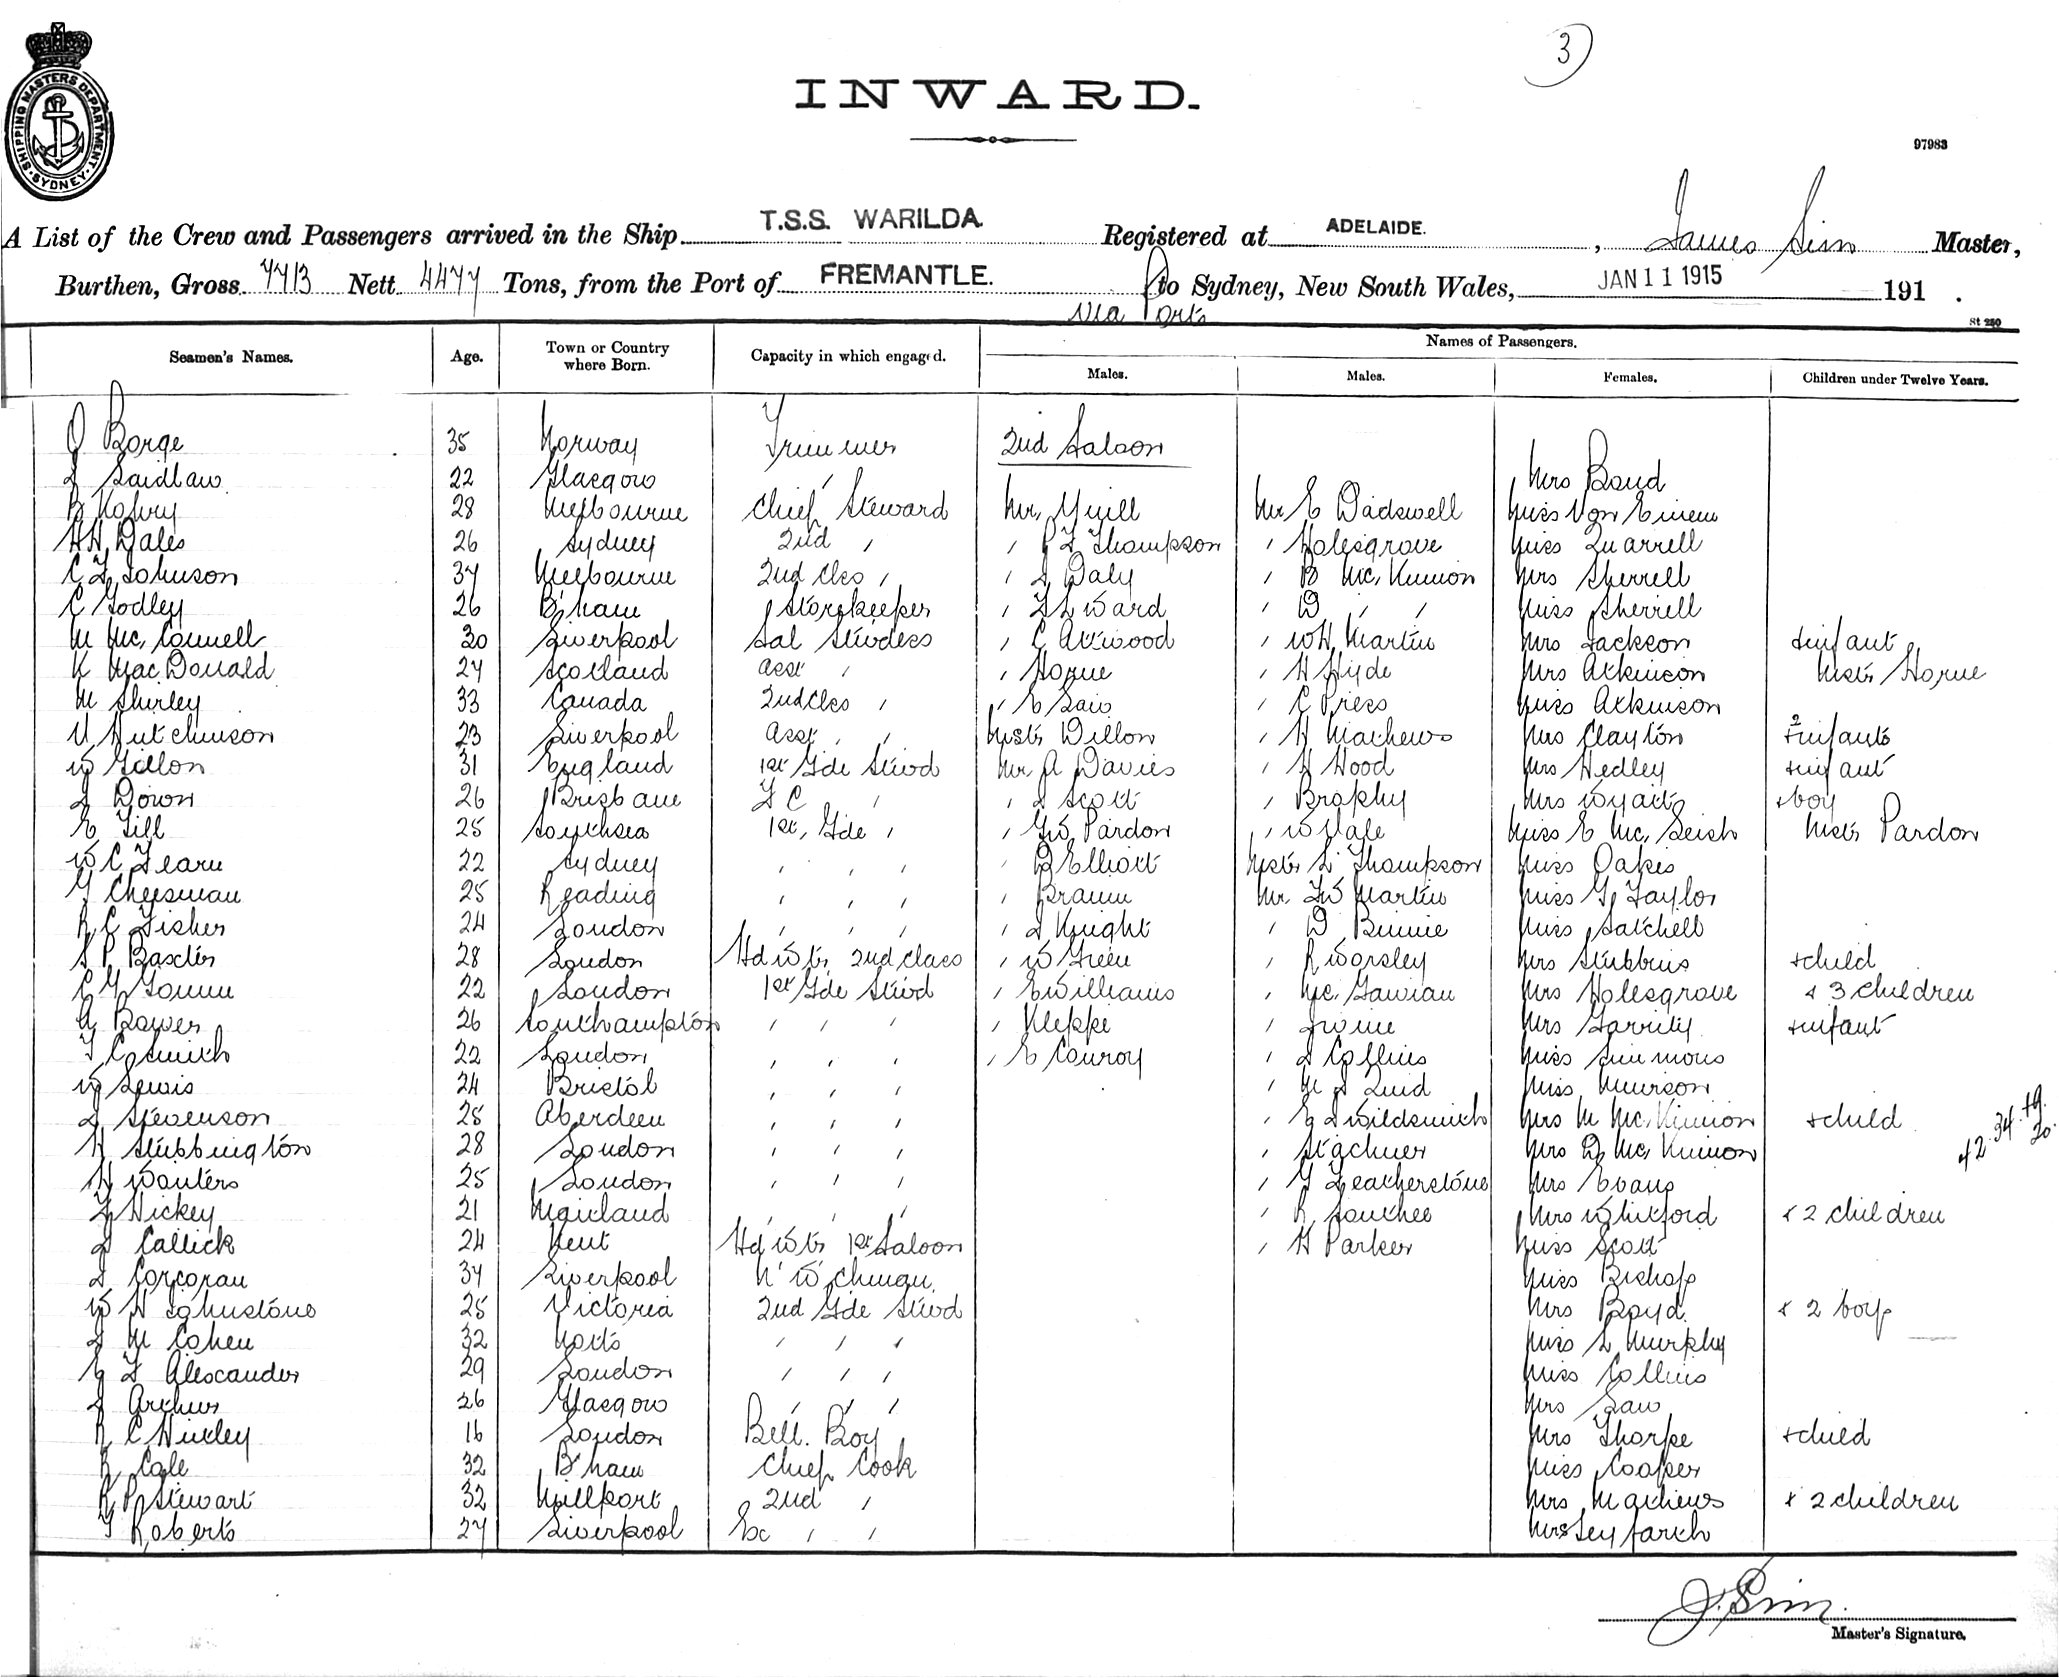 3
INWARD.
SHIPPING MASTERS DEPARTMENT. SYDNEY.
97983
A List of the Crew and Passengers arrived in the Ship T.S.S. WARILDA Registered at ADELAIDE. , James Sim Master,
Burthen, Gross 7713 Nett 4477 Tons, from the Port of FREMANTLE. to Sydney, New South Wales, JAN 11 1915 191 .
Via Ports
St 250
Seamen's Names. Age. Town or Country where Born. Capacity in which engaged. Names of Passengers.
Males. Males. Females. Children under Twelve Years.
Borge 35 Norway Trimmer 2nd Saloon
Laidlaw 22 Glasgow " Mrs Bond
B 28 Melbourne Chief Steward Mr. Yuill Mr E Dadswell Miss Von Einem
HH Dales 26 Sydney 2nd " " Thompson " Holesgrove Miss Quarrell
C F Johnson 37 Melbourne 2nd Clss " " J Daly " B Mc. Kinnon Mrs Sherrell
C Godley 26 B'ham Storekeeper " Ward " D " " Miss Sherrell
M Mc. Connell 30 Liverpool Sal Stwdess " C Attwood " W H Martin Mrs Jackson + infant
K MacDonald 27 Scotland Asst " " Horne " H Hyde Mrs Atkinson Mstr Horne
M Shirley 33 Canada 2nd Clss " " E Law " C Press Miss Atkinson
Hutchinson 23 Liverpool Asst " " Mstr Dillon " H Mathews Mrs Clayton + 2 infants
W Gillon 31 England 1st Gde Stwd Mr A Davies " H Wood Mrs Hedley + infant
J Down 26 Brisbane " " J Scott " Brophy Mrs Wyatt + boy
E Till 25 Southsea 1st Gde " " Pardon " W Vale Miss E Mc. Leish Mstr Pardon
W C Fearn 22 Sydney " " " " Elliott Mstr L Thompson Miss Oakes
Cheesman 25 Reading " " " " Braun Mr Martin Miss G Taylor
R C Fisher 24 London " " " " J Knight " D Binnie Miss Satchell
S P Baxter 28 London Hd Wtr 2nd Class " W Green " R Worsley Mrs Stubbins + child
C G 22 London 1st Gde Stwd " E Williams " Mc. Mrs Holesgrove + 3 children
A Bower 26 Southampton " " " " Kleppe " Irvine Mrs Garrity + infant
C Smith 22 London " " " " E Conroy " J Collins Miss Simmons
W Lewis 24 Bristol " " " " M J Quid Miss Munson
J Stevenson 25 Aberdeen " " " " E J Wildsmith Mrs M Mc. Kinnon + child
H Stubbington 28 London " " " " Mrs D Mc. Kinnon
H Wouters 25 London " " " " Featherstone Mrs Evans
Hickey 21 Maitland " " " " R Southee Mrs Whitford + 2 children
J Callick 24 Kent Hd Wtr 1st Saloon " H Parker Miss Scott
J Corcoran 37 Liverpool Miss Bishop
W H Johnstone 25 Victoria 2nd Gde Stwd Mrs Boyd + 2 boys
J M Cohen 32 Notts " " " Miss L Murphy
E F Alexander 29 London " " " Miss Collins
J Arthur 26 Glasgow " " " Mrs Law
R C Huxley 16 London Bell Boy Mrs Thorpe + child
R Cole 32 B'ham Chief Cook Miss Cooper
R P Stewart 32 Millport 2nd " Mrs Mathews + 2 children
Roberts 27 Liverpool Ex " " Mrs Seyfarth
42. 34. 19. 20.
J. Sim.
Master's Signature.